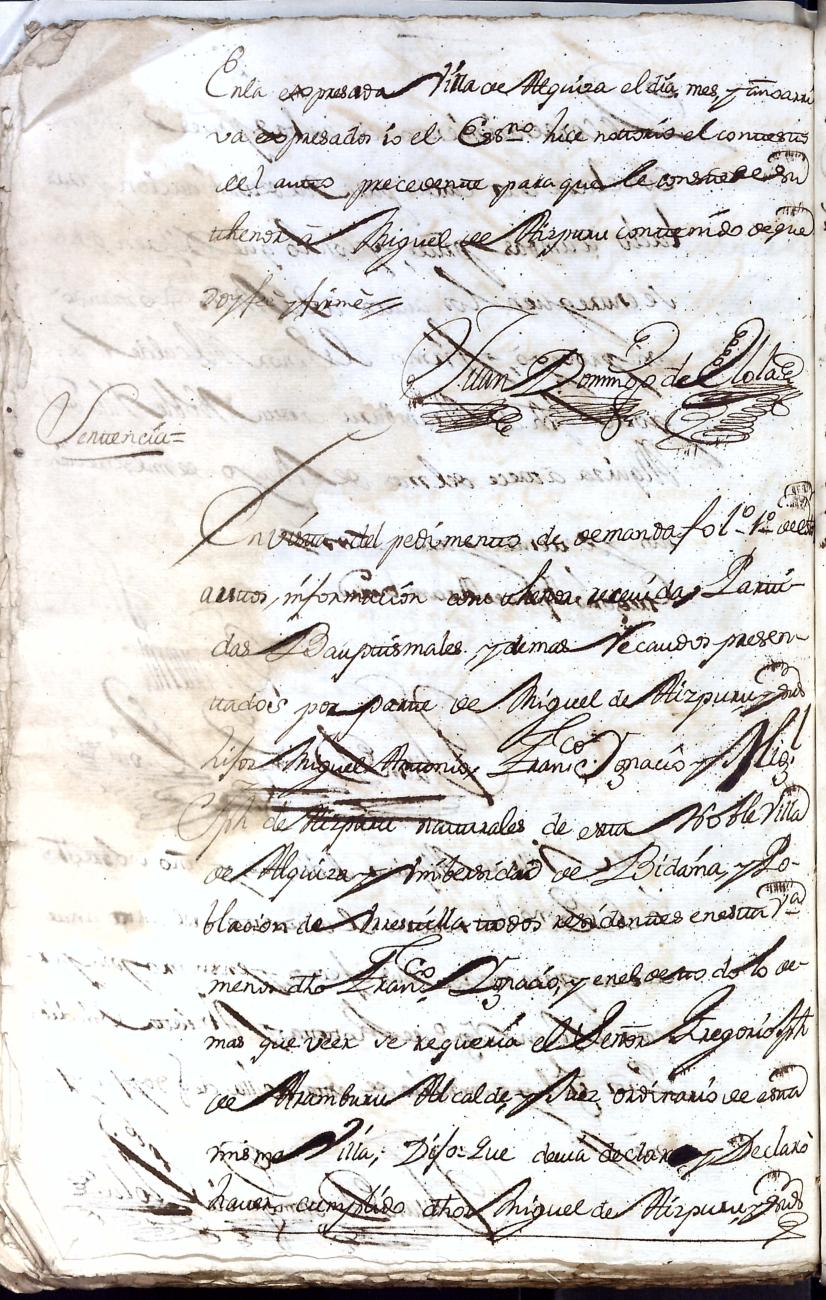 En la expresada Villa de Alquiza el dia, mes y año arri
va expresados io el Essno. hice notorio el contexto
del auto precedente para que le conste de su
thenor à Miguel de Aizpuru contenido de que
doy fee y firmè
Juan Domingo de Elola
Sentencia=
En vista del pedimento de demanda fol.o 1.o de estos
autos, información con su thenor recevida, Parti-
das Bauptismales, y demas Recaudos presen-
tados por parte de Miguel de Aizpuru, y sus
hijos Miguel Antonio, Franc.co Ygnacio y Mig.l
Jph de Aizpuru naturales de esta Noble Villa
de Alquiza, y Unibersidad de Bidània, y Po-
blacion de Urrestilla todos residentes en esta V.a
menos dho Franc.co Ygnacio, y en el de todo lo de
mas que veer se requeria el Señor Gregorio Jph
de Aramburu Alcalde, y Juez ordinario de esta
misma Villa; Dijo: Que devia declarar y Declarò
haver cumplido dhos Miguel de Aizpuru, y sus